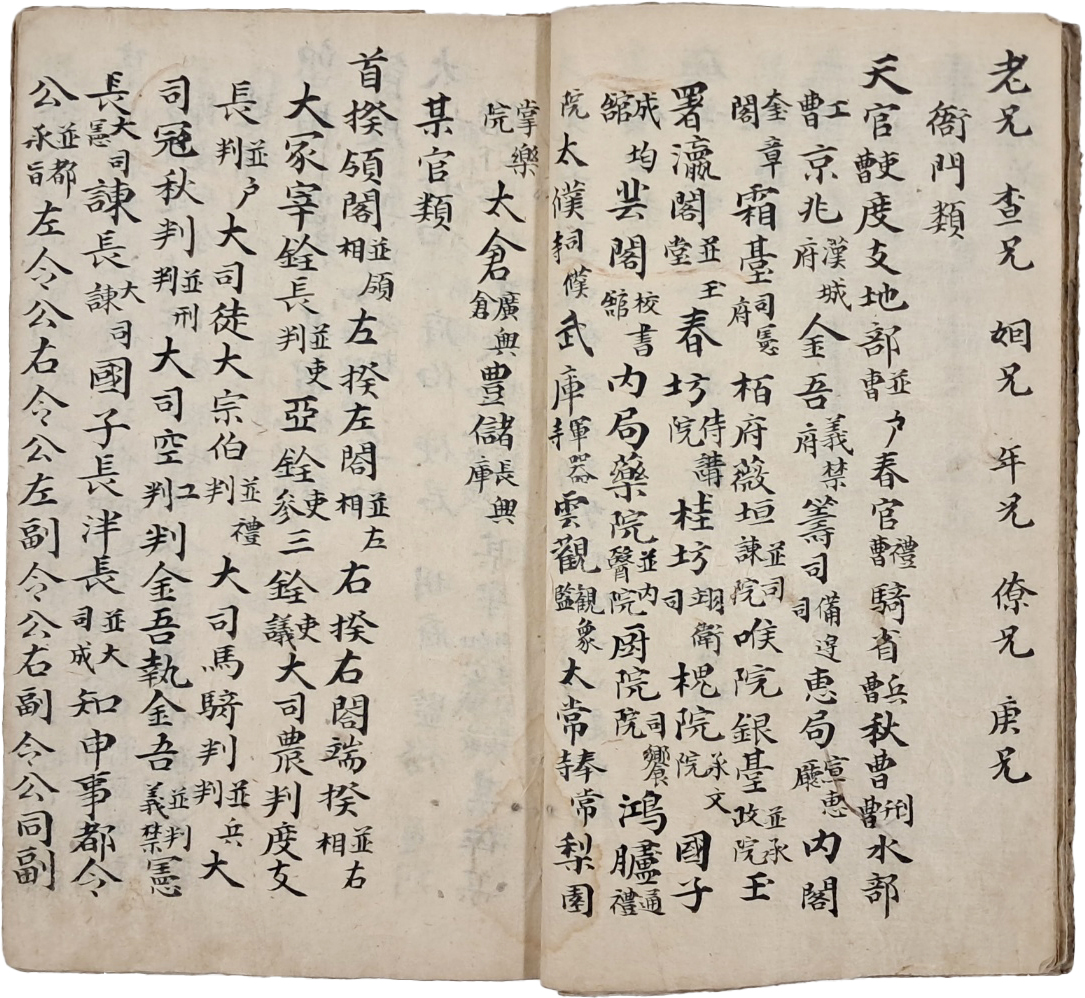 老兄 查兄 姻兄 年兄 僚兄 庚兄
衙門類
天官曹吏度支地部並戶曹春官禮曹騎省兵曹秋曹刑曹水部
工曹京兆漢城府金吾義禁府籌司備邊司惠局宣惠廳內閣
奎章閣霜臺司憲府栢府薇垣並司諫院喉院銀臺並承政院玉
署瀛閣並玉堂春坊侍講院桂坊翊衛司槐院承文院國子
成均舘芸閣校書舘內局藥院並內醫院廚院司饔院鴻臚通禮
院太僕司僕寺武庫軍器寺雲觀觀象監太常奉常寺梨園
掌樂院太倉廣興倉豊儲長興庫
某官類
首揆領閣並領相左揆左閤並左相右揆右閤端揆並右相
大冢宰銓長並吏判亞銓吏參三銓吏議大司農判度支
長並戶判大司徒大宗伯並禮判大司馬騎判並兵判大
司冠秋判並刑判大司空工判判金吾執金吾並判義禁憲
長大司憲諫長大司諫國子長泮長並大司成知申事都令
公並都承旨左令公右令公左副令公右副令公同副